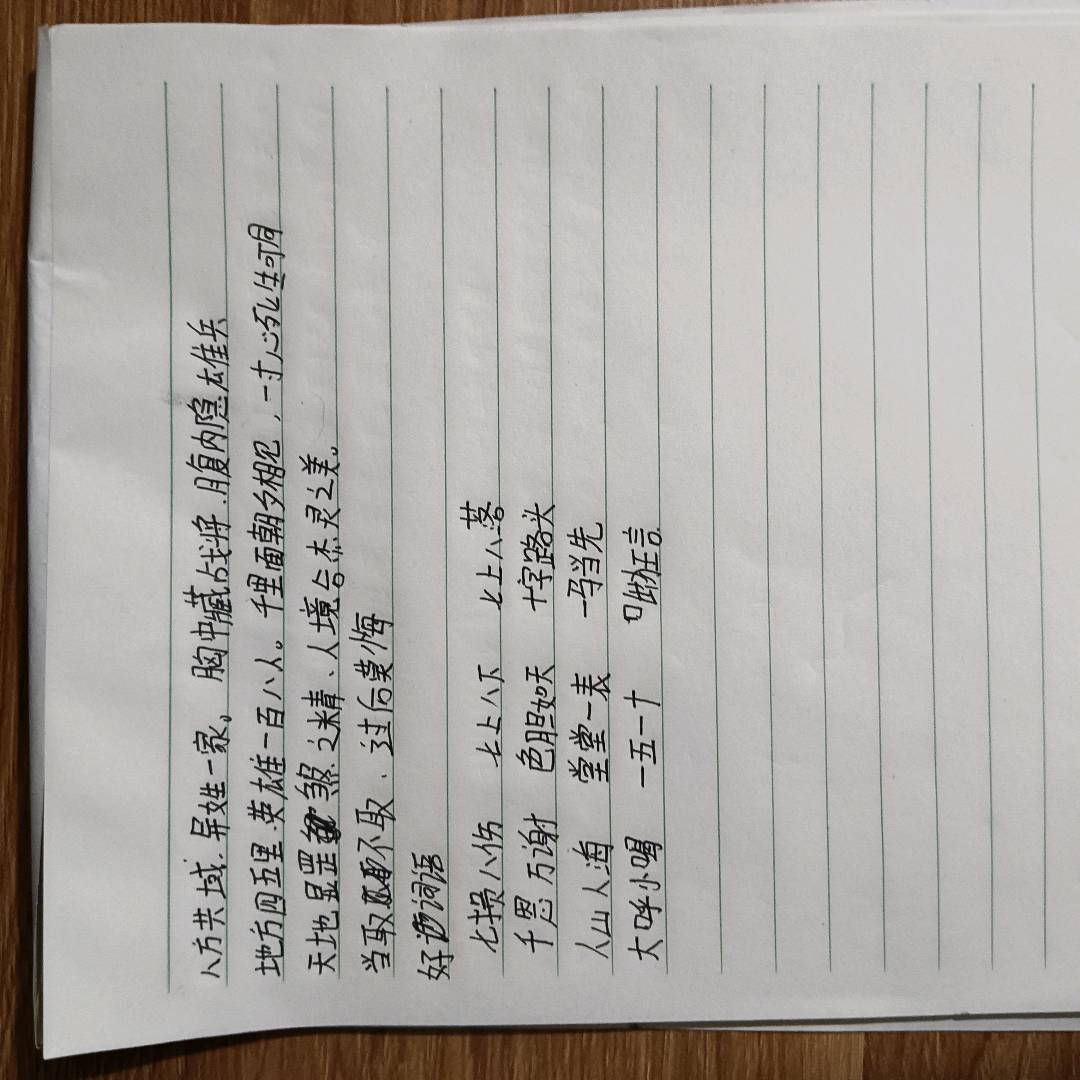 八方共域.异姓一家。胸中藏战将.腹内隐雄兵
地方四五里.英雄一百八人。千里面朝夕相见,一寸心死生可同
天地显罡煞之精、人境合杰灵之美。
当取不取、过后莫悔
好词语
七损八伤 七上八下 七上八落
千恩万谢 色胆如天 十字路头
人山人海 堂堂一表 一马当先
大呼小喝 一五一十 口出狂言